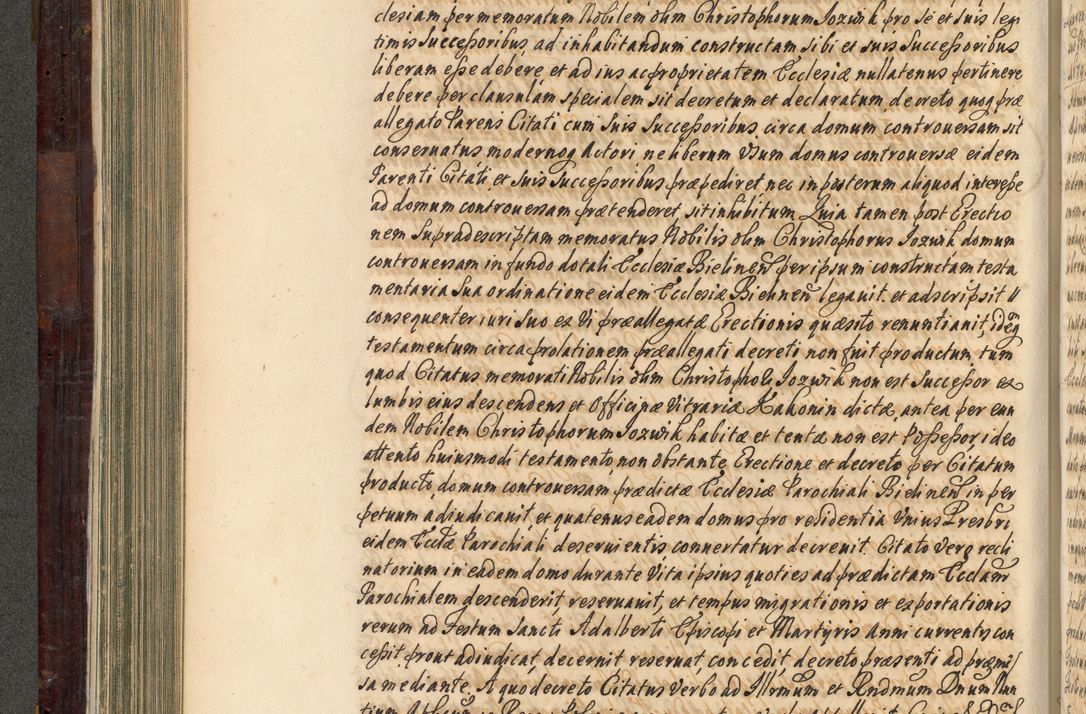 clesiam per memoratum Nobilem olim Christophorum Jozwik pro se et suis legi
timis Successoribus, ad inhabitandum constructam sibi et suis Successoribus
liberam esse debere, et ad ius ac proprietatem Ecclesiæ nullatenus pertinere
debere per clausulam specialem sit decretum et declaratum, decreto quoq præ
allegato Parens Citati cum suis Successoribus circa domum controuersam sit
conseruatus modernoq Actori, ne liberum Usum domus controuersæ eidem
Parenti Citati, et suis Successoribus præpediret nec in posterum aliquod interesse
ad domum controuersam prætenderet, sit inhibitum, Quia tamen post Erectio
nem Supradescriptam memoratus Nobilis olim Christophorus Jozwik domum
controuersam in fundo dotali Ecclesiæ Bielinen per ipsum constructam testa
mentaria Sua ordinatione eidem Ecclesiæ Bielinen legauit, et adscripsit
consequenter iuri Suo ex Vi præallegatæ Erectionis quæsito renuntiauit, idq
testamentum circa prolationem præallegati decreti non fuit productum, tum
quod Citatus memorati Nobilis olim Christophori Jozwik non est Successor ex
lumbis eius descendens et Officinæ Vitrariæ Kakonin dictæ, antea per eun
dem Nobilem Christophorum Jozwik habitæ et tentæ non est Possessor, ideo
attento huiusmodi testamento, non obstante Erectione et decreto per Citatum
producto, domum controuersam prædictæ Ecclesiæ Parochiali Bielinen in per
petuum adiudicauit, et quatenus eadem domus pro residentia Vnius Presbri
eidem Ecclæ Parochiali deseruientis conuertatur decreuit. Citato vero recli
natorium in eadem domo durante Vita ipsius quoties ad prædictam Ecclam
Parochialem descenderit, reseruauit, et tempus migrationis et exportationis
rerum ad Festum Sancti Adalberti Episcopi et Martyris Anni currentis con
cessit, prout adiudicat, decernit reseruat, concedit, decreto præsenti ad præmis
sa mediante. A quo decreto Citatus Verbo ad Illrmum et Rndmum Dnum Nun